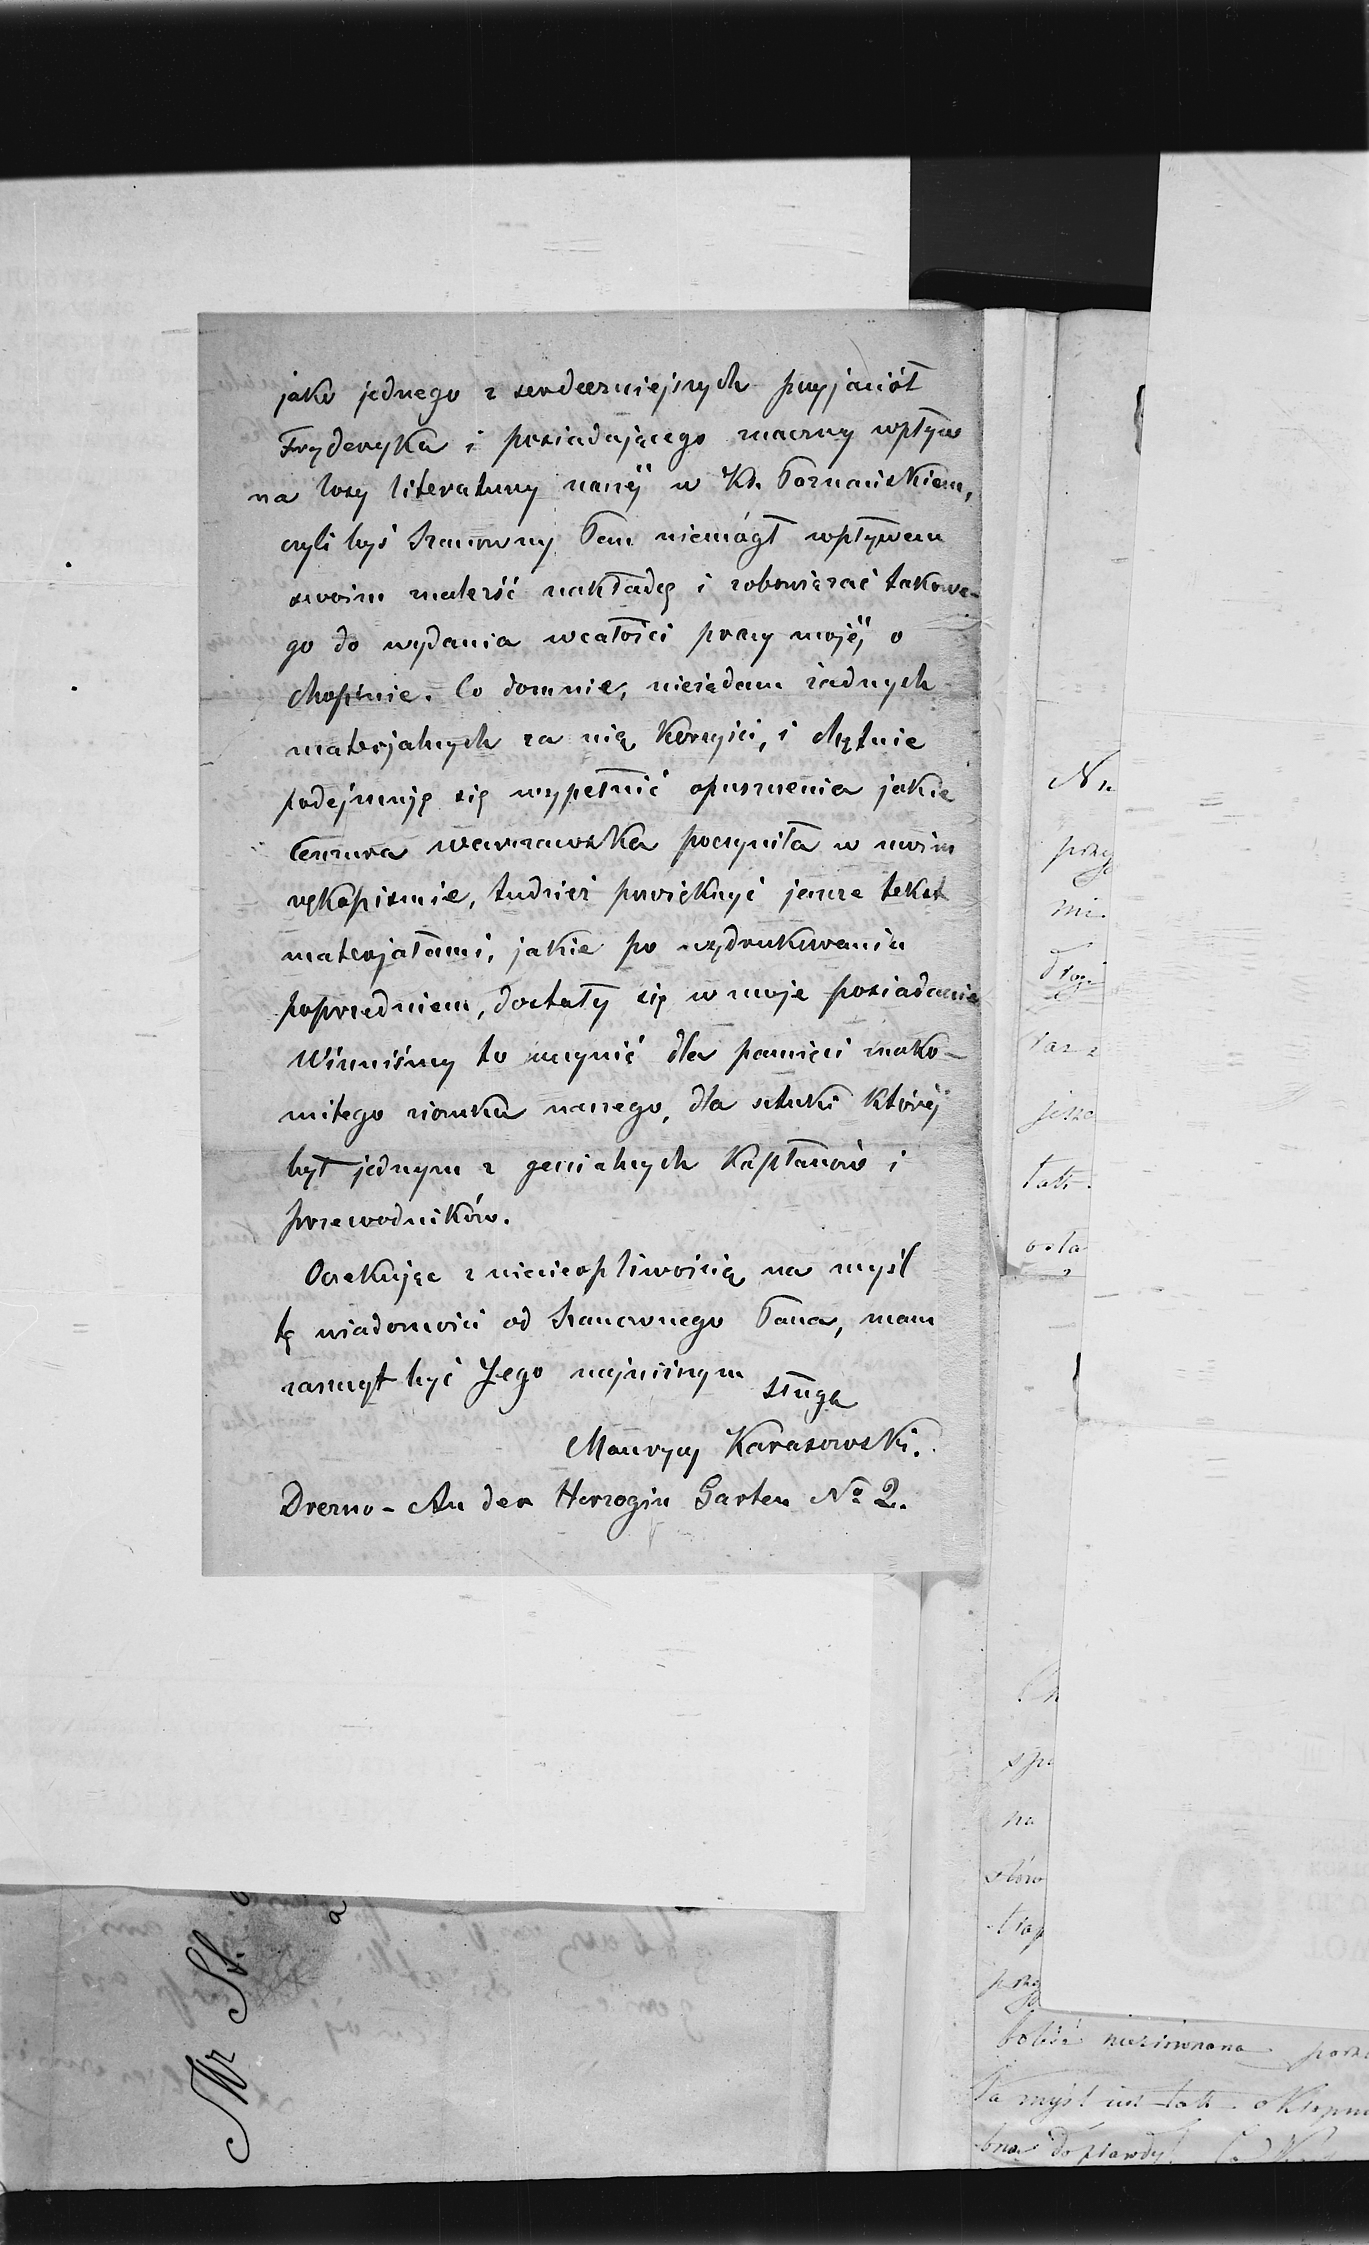 jako jednego z serdeczniejszych przyjaciół
Fryderyka i posiadającego znaczny wpływ
na losy literatury naszéj w Ks. Poznańskiem,
czyli byś Szanowny Pan niemógł wpływem
swoim znaleść nakładcę i zobowiązać takowe-
go do wydania wcałości pracy mojéj, o
Chopinie. Co domnie, nieżądam żadnych
materjalnych za nią korzyści, i chętnie
podejmuję się wypełnić opuszczenia jakie
Cenzura warszawska poczyniła w moim
rękopismie, tudzież powiększyć jeszcze tekst
materjałami, jakie po wydrukowaniu
poprzedniem, dostały się w moje posiadanie
Winniśmy to uczynić dla pamięci znako-
mitego ziomka naszego, dla sztuki któréj
był jednym z genialnych kapłanów i
przewodników.
Oczekując z niecierpliwością na myśl
tę wiadomości od Szanownego Pana, mam
zaszczyt być Jego najniższym sługą
Maurycy Karasowski.
Drezno - An der Herzogin Garten No 2.
Mr St.
przy
mi.
jeszc
tak
osta
spo
na
słów
przy
Ta myśl